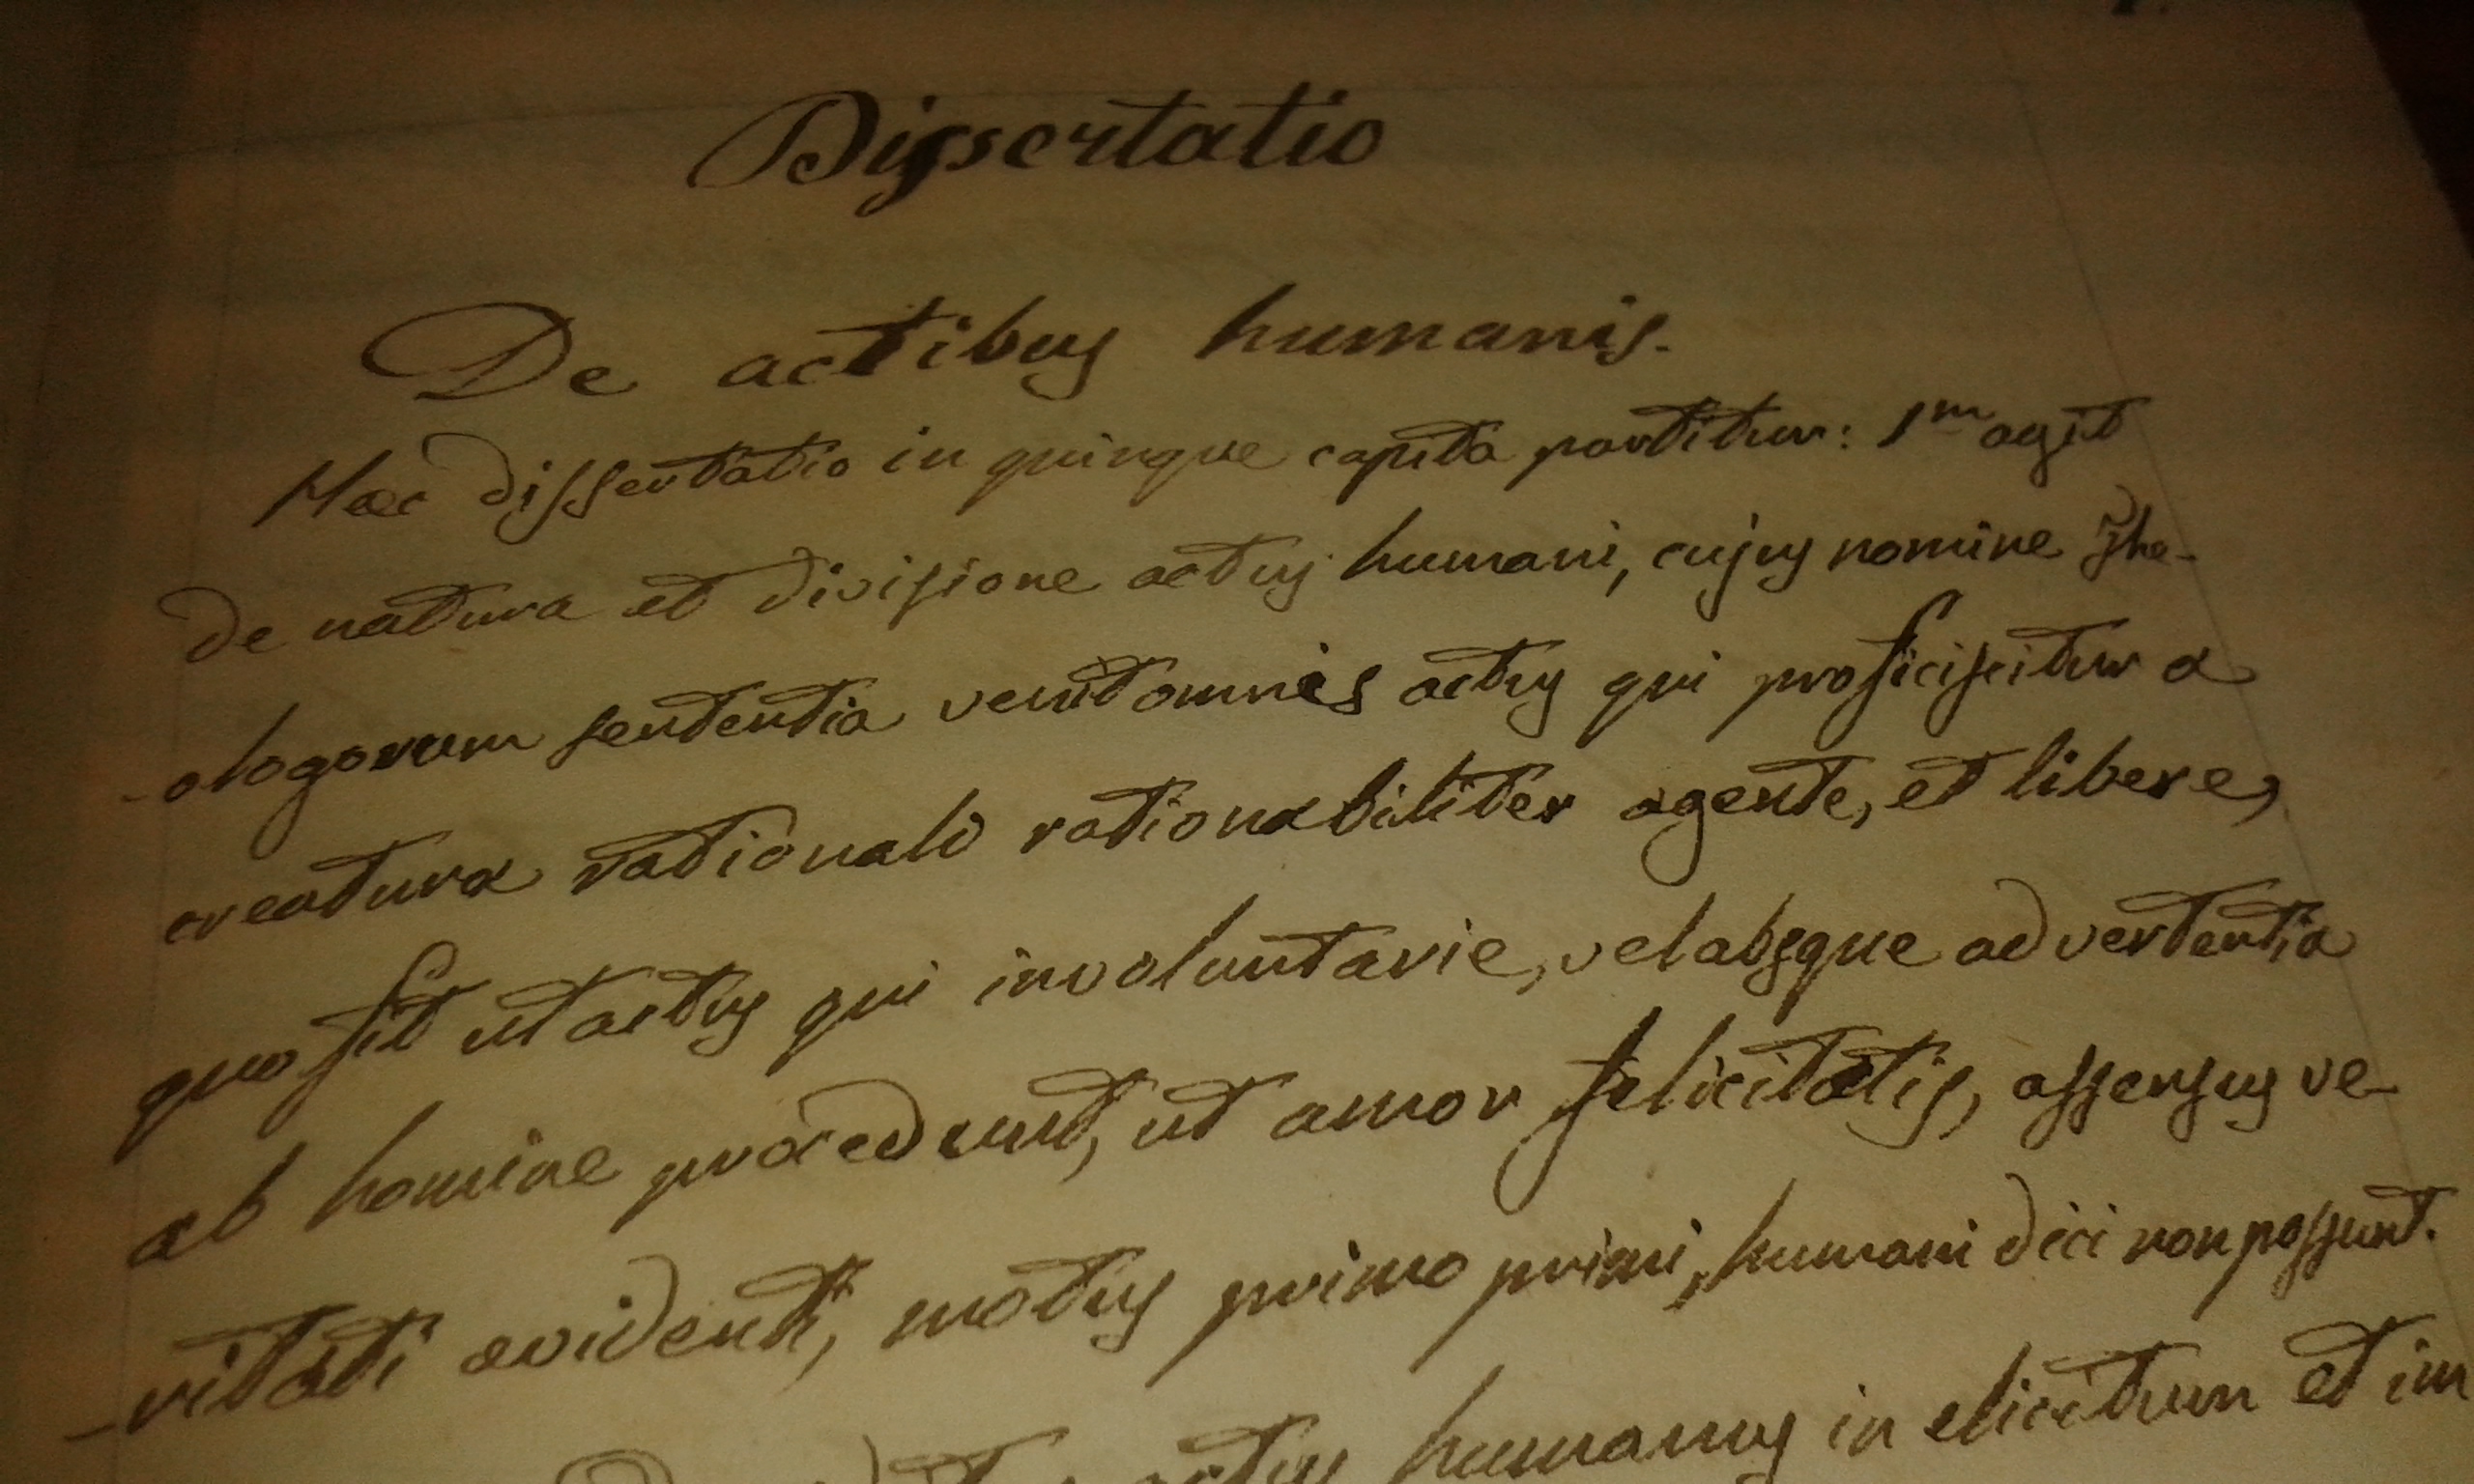 Dissertatio
De actibus humanis.
Hæc dissertatio in quinque capita partitur: 1m agit
de natura et divisione actus humani, cujus nomine The-
-ologorum sententia venit omnis actus qui proficiscitur a
creatura rationali rationabiliter agente, et libere,
quo fit ut actus qui involuntarie, vel absque advertentia
ab homine procedunt, ut amor felicitatis, assensus ve-
-ritati evidenti, motus primo primi, humani dici non possunt.
actus humanus in elicitum et im